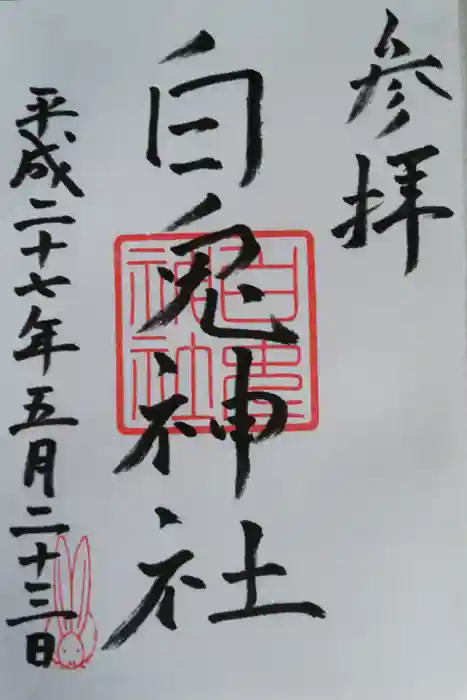 参拝
白兎神社
平成二十七年五月二十三日